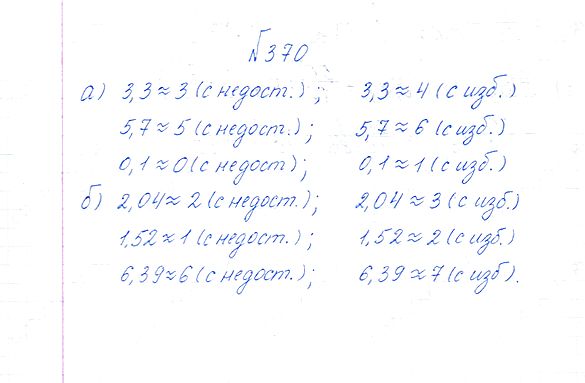 №370
а) 3,3≈3 (с недост.); 3,3≈4 (с изб.)
5,7≈5 (с недост.); 5,7≈6 (с изб.)
0,1≈0 (с недост); 0,1≈1 (с изб.)
б) 2,04≈2 (с недост.); 2,04≈3 (с изб)
1,52≈1 (с недост.); 1,52≈2 (с изб.)
6,39≈6 (с недост.); 6,39≈7 (с изб).